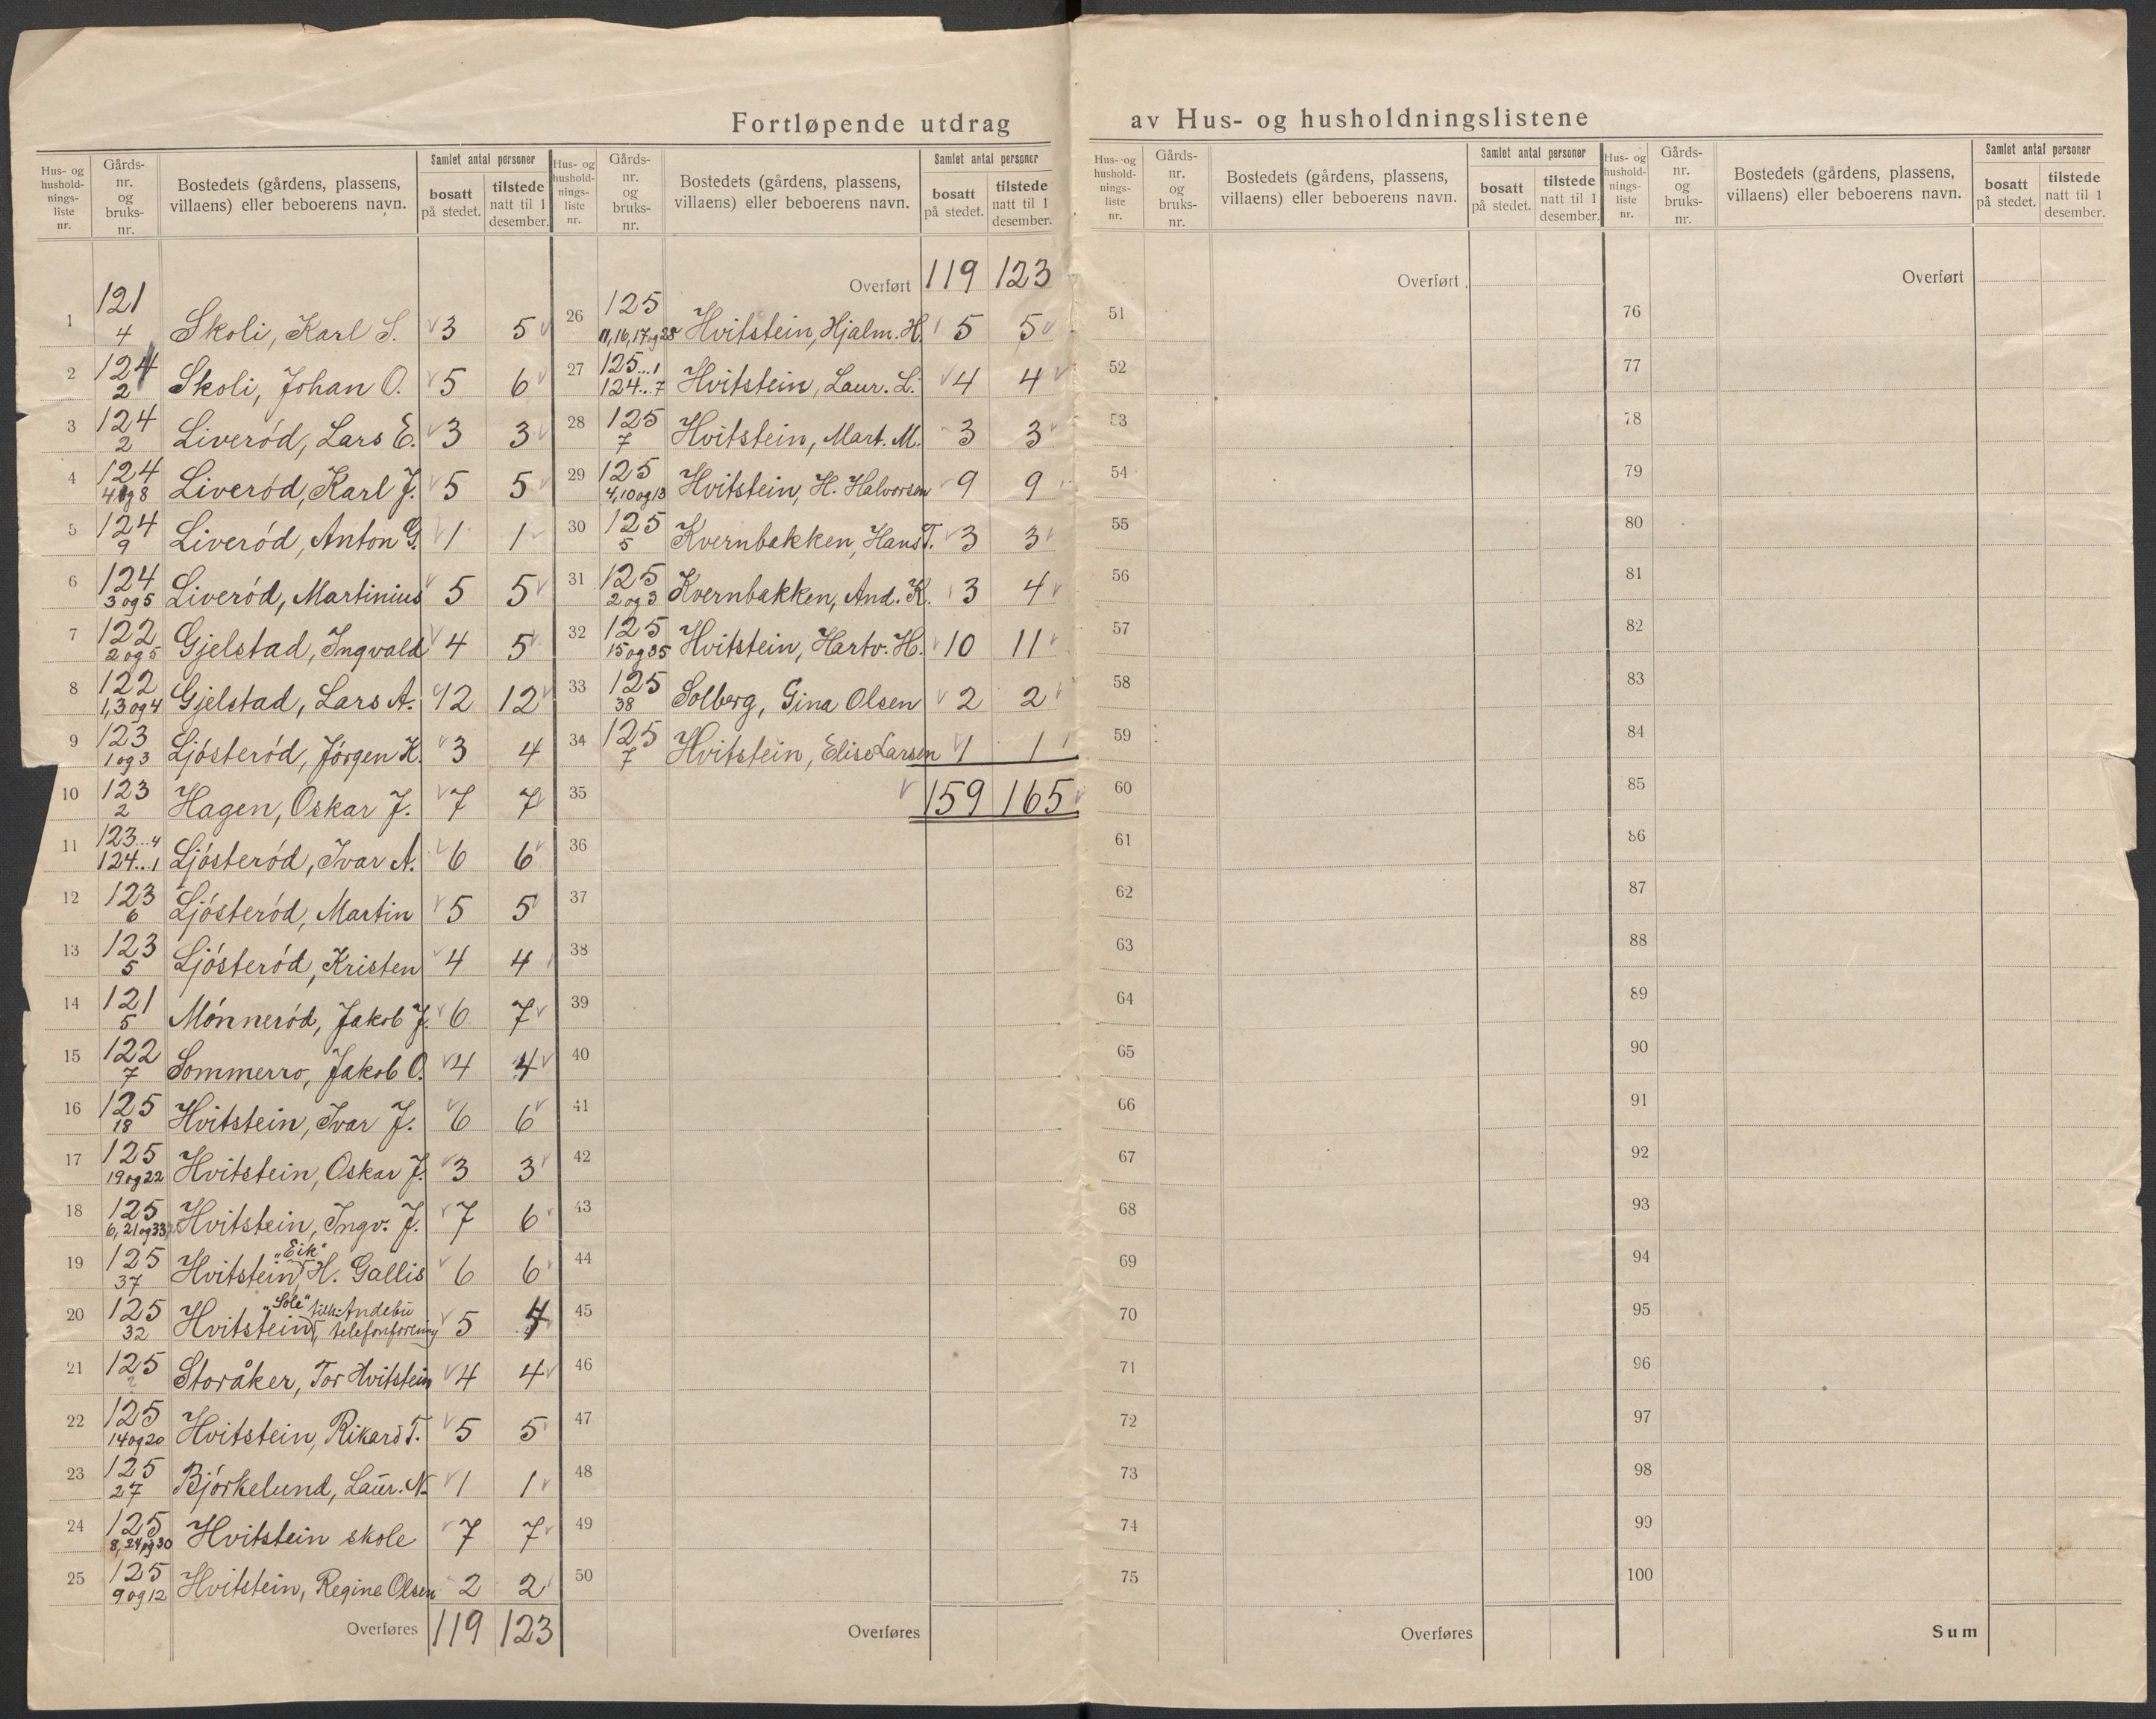 Fortløpende utdrag av Hus- og husholdningslistene
Hus- og hushold- nings- liste nr. | Gårds- nr. og bruks- nr. | Bostedets (gårdens, plassens, villaens) eller beboerens navn. | Samlet antal personer | bosatt på stedet. | tilstede natt til 1 desember.
1 | 121 4 | Skoli, Karl S. | 3 | 5
2 | 124 2 | Skoli, Johan O. | 5 | 6
3 | 124 2 | Liveród, Lars E. | 3 | 3
4 | 124 4 og 8 | Liveród, Karl J. | 5 | 5
5 | 124 9 | Liveród, Anton G. | 1 | 1
6 | 124 3 og 5 | Liveród, Martinius | 5 | 5
7 | 122 2 og 5 | Gjelstad, Ingvald | 4 | 5
8 | 122 1, 3 og 4 | Gjelstad, Lars A. | 12 | 12
9 | 123 1 og 3 | Ljósteród, Jórgen K. | 3 | 4
10 | 123 2 | Hagen, Oskar J. | 7 | 7
11 | 123...4 124...1 | Ljósteród, Ivar A. | 6 | 6
12 | 123 6 | Ljósteród, Martin | 5 | 5
13 | 123 5 | Ljósteród, Kristen | 4 | 4
14 | 121 5 | Mónneród, Jakob J. | 6 | 7
15 | 122 7 | Sommerro, Jakob O. | 4 | 4
16 | 125 18 | Hvitstein, Ivar J. | 6 | 6
17 | 125 19 og 22 | Hvitstein, Oskar J. | 3 | 3
18 | 125 6, 21 og 33 | Hvitstein, Ingv. J. | 7 | 6
19 | 125 37 | Hvitstein "Eik", H. Gallis | 6 | 6
20 | 125 32 | Hvitstein "Sole", tilh. Andebu telefonforening | 5 | 4
21 | 125 ? | Storåker, Tor Hvitstein | 4 | 4
22 | 125 14 og 20 | Hvitstein, Rikard T. | 5 | 5
23 | 125 27 | Bjórkelund, Laur. N. | 1 | 1
24 | 125 8, 24 og 30 | Hvitstein skole | 7 | 7
25 | 125 9 og 12 | Hvitstein, Regine Olsen | 2 | 2
Overføres | 119 | 123
Hus- og hushold- nings- liste nr. | Gårds- nr. og bruks- nr. | Bostedets (gårdens, plassens, villaens) eller beboerens navn. | Samlet antal personer | bosatt på stedet. | tilstede natt til 1 desember.
Overført | 119 | 123
26 | 125 11, 16, 17 og 28 | Hvitstein, Hjalm. H. | 5 | 5
27 | 125...1 124...7 | Hvitstein, Laur. L. | 4 | 4
28 | 125 7 | Hvitstein, Mart. M. | 3 | 3
29 | 125 4, 10 og 13 | Hvitstein, H. Halvorsen | 9 | 9
30 | 125 5 | Kvernbakken, Hans T. | 3 | 3
31 | 125 2 og 3 | Kvernbakken, And. K. | 3 | 4
32 | 125 15 og 35 | Hvitstein, Hartv. H. | 10 | 11
33 | 125 38 | Solberg, Gina Olsen | 2 | 2
34 | 125 7 | Hvitstein, Elise Larsen | 1 | 1
35 | 159 | 165
36
37
38
39
40
41
42
43
44
45
46
47
48
49
50
Overføres
Hus- og hushold- nings- liste nr. | Gårds- nr. og bruks- nr. | Bostedets (gårdens, plassens, villaens) eller beboerens navn. | Samlet antal personer | bosatt på stedet. | tilstede natt til 1 desember.
Overført
51
52
53
54
55
56
57
58
59
60
61
62
63
64
65
66
67
68
69
70
71
72
73
74
75
Overføres
Hus- og hushold- nings- liste nr. | Gårds- nr. og bruks- nr. | Bostedets (gårdens, plassens, villaens) eller beboerens navn. | Samlet antal personer | bosatt på stedet. | tilstede natt til 1 desember.
Overført
76
77
78
79
80
81
82
83
84
85
86
87
88
89
90
91
92
93
94
95
96
97
98
99
100
Sum